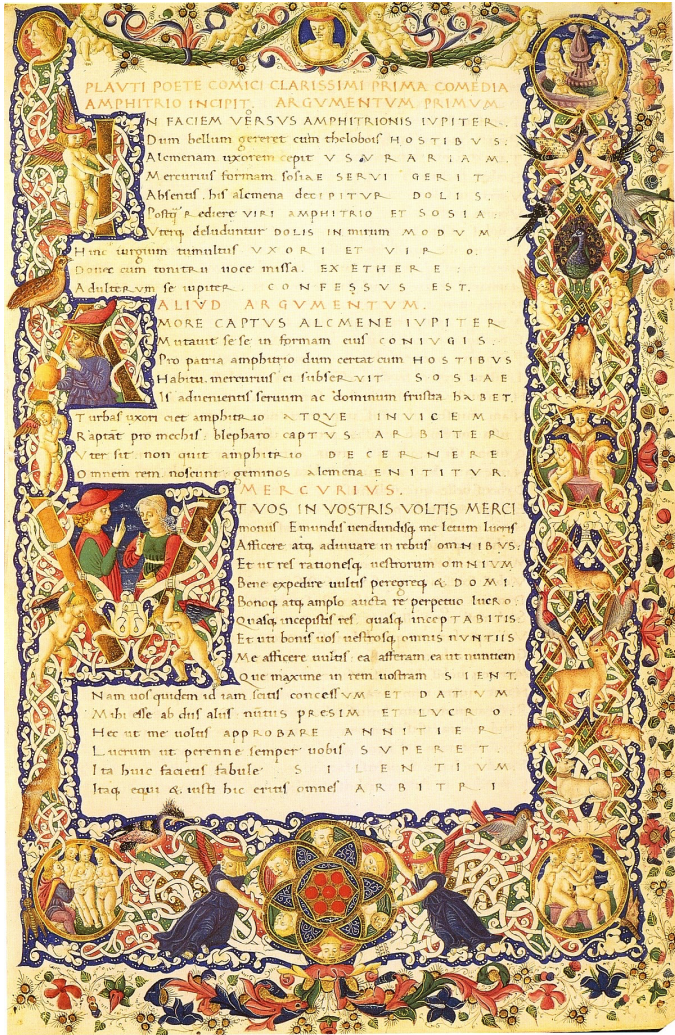 PLAVTI POETE COMICI CLARISSIMI PRIMA COMEDIA
AMPHITRIO INCIPIT. ARGVMENTVM PRIMVM.
IN FACIEM VERSVS AMPHITRIONIS IVPITER.
Dum bellum gereret cum thelobois HOSTIBVS.
Alcmenam uxorem cepit VSVRARIAM.
Mercurius formam sosiae SERVI GERIT
Absentis. his alcmena deciPITVR DOLIS.
Postq̃ Rediere VIRI AMPHITRIO ET SOSIA:
Vterq deluduntur DOLIS in mirum MODVM
Hinc iurgium tumultus VXORI ET VIRO.
Donec cum tonitru uoce missa. EX ETHERE:
Adulterum se iupiter. CONFESSVS EST.
ALIVD ARGVMENTVM.
AMORE CAPTVS ALCMENE IVPITER
Mutauit sese in formam eius CONIVGIS.
Pro patria amphitrio dum certat cum HOSTIBVS
Habitu. mercurius ei subserVIT SOSIAE
Is aduenientis seruum ac dominum frustra HABET.
Turbas uxori ciet amphitrio ATQVE INVICEM
Raptat pro mechis: blepharo capTVS ARBITER
Vter sit non quit amphitrio DECERNERE
Omnem rem noscunt geminos alcmena ENITITVR.
MERCVRIVS.
VT VOS IN VOSTRIS VOLTIS MERCI
moniis Emundis uendundisq me letum lucris
Afficere atq adiuuare in rebus omNIBVS:
Et ut res rationesq uostrorum OMNIVM
Bene expedire uultis peregreq & DOMI.
Bonoq atq amplo aucta re perpetuo lucro:
Quasq incepistis res. quasq incepTABITIS:
Et uti bonis uos uostrosq omnis NVNTIIS
Me afficere uultis: ea afferam ea ut nuntiem
Que maxime in rem uostram SIENT.
Nam uos quidem id iam scitis concessVM ET DATVM
Mihi esse ab diis aliis nũtiis PRESIM ET LVCRO
Hec ut me voltis APPROBARE ANNITIER
Lucrum ut perenne semper uobis SVPERET.
Ita huic facietis fabule SILENTIVM.
Itaq equi & iusti hic eritis omnes ARBITRI